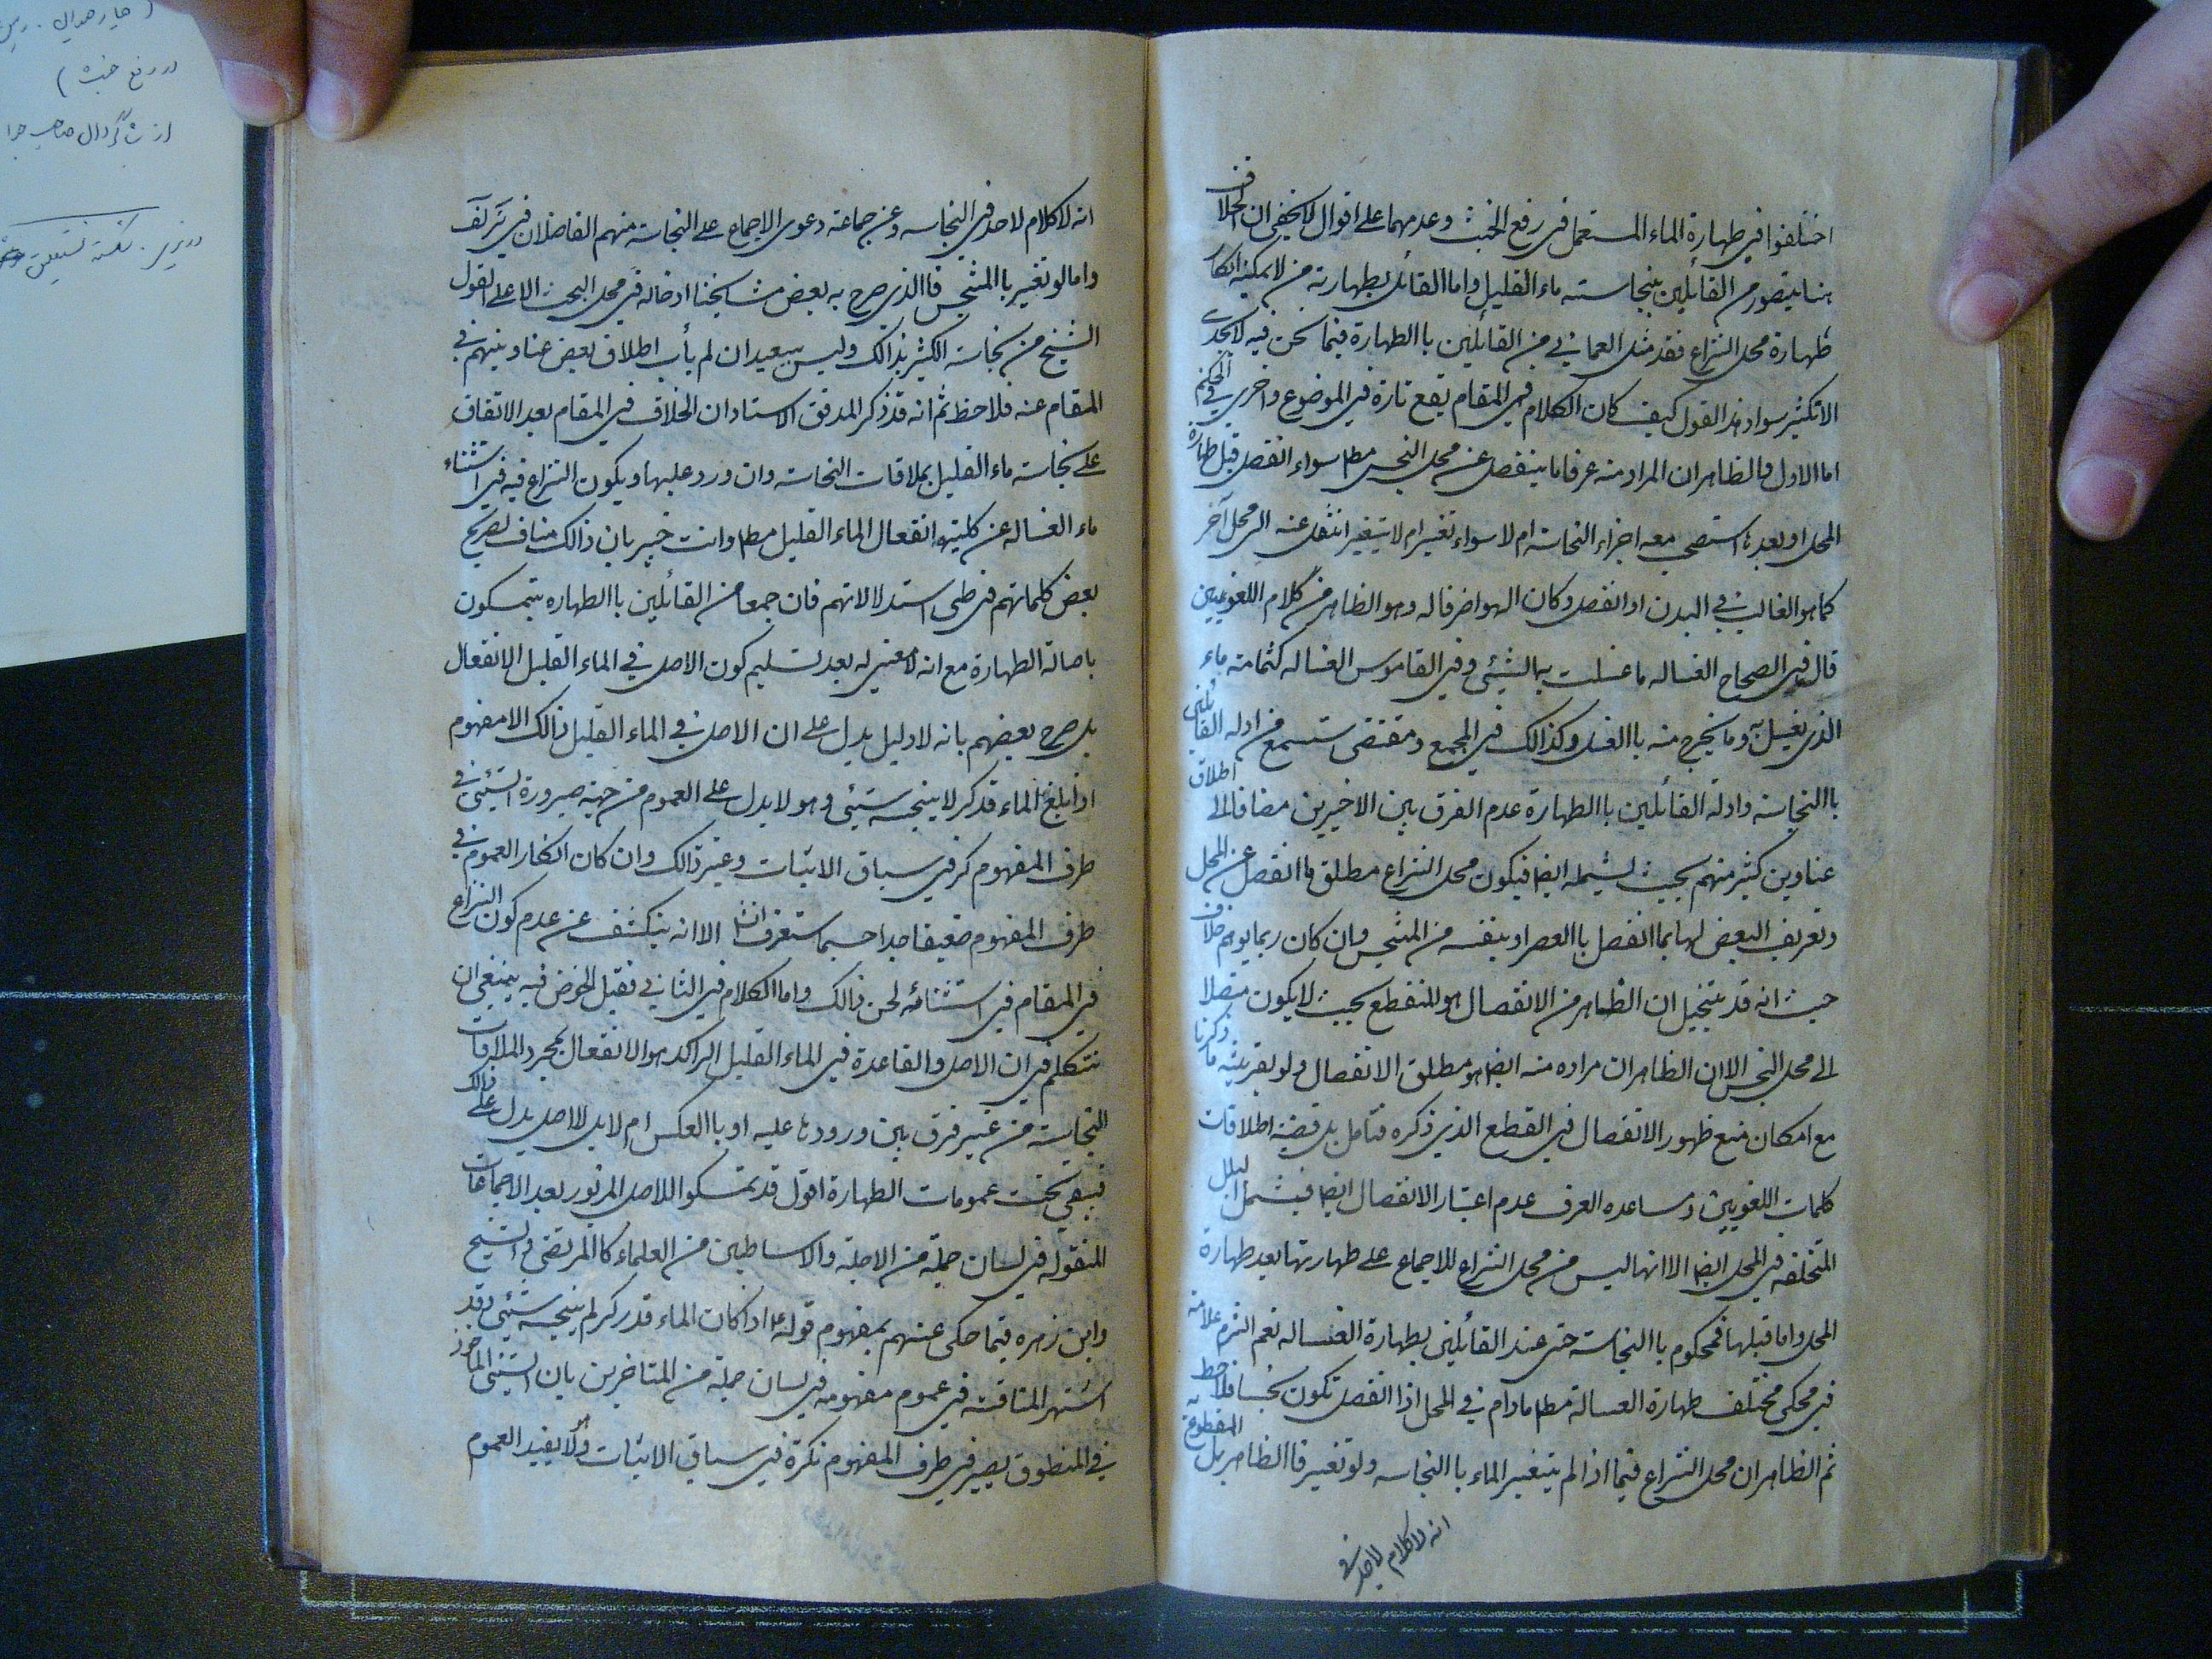 اختلفوا في طهارة الماء المستعمل في رفع الخبث وعدمهما على اقوال لا يخفى ان الخلاف
هنا يتصور من القائلين بنجاسته ماء القليل واما القائل بطهارته من لا يمكنه انكار
طهارة محل النزاع فقد مثل العماني من القائلين باالطهارة فيما نحن فيه لا يجدى
الا تكثير سواد هذا القول كيف كان الكلام في المقام يقع تارة في الموضوع واخرى في الحكم
اما الاول فالظاهر ان المراد منه عرفا ما ينفصل عن محل النجس مطلـ سواء انفصل قبل طهارة
المحل او بعدها استصحب معه اجزاء النجاسة ام لا سواء تغير ام لا يتغير انتقل عنه الى محل آخر
كما هو الغالب في البدن او انفصل وكان الهواء ظرفا له وهو الظاهر من كلام اللغويين
قال في الصحاح الغساله ما غسلت به الشيئ وفي القاموس الغساله كثمامة ماء
الذي يغسل به وما يخرج منه باالغسل وكذالك في المجمع ومقتضى ستسمع من ادله القائلين
باالنجاسة وادلة القائلين باالطهارة عدم الفرق بين الاخيرين مضافا الى اطلاق
عناوين كثير منهم بحيث يشمله ايضا فيكون محل النزاع مطلق ما انفصل عن المحل
وتعريف البعض لها بما انفصل باالعصر او بنفسه من المتنجس وان كان ربما يوهم خلاف
حيث انه قد يتخيل ان الظاهر من الانفصال هو المنقطع بحيث لا يكون متصلا
الى محل النجس الا ان الظاهر ان مراده منه ايضا هو مطلق الانفصال ولو بقرينة ما ذكرنا
مع امكان منع ظهور الانفصال في القطع الذي ذكره فتامل بل قضية اطلاقات
كلمات اللغويين ومساعدة العرف عدم اعتبار الانفصال ايضا فيشمل البلل
المتخلفه في المحل ايضا الا انها ليس من محل النزاع للاجماع على طهارتها بعد طهارة
المحل واما قبلها فمحكوم باالنجاسة حتى عند القائلين بطهارة الغساله نعم التزم علامة
في محكى مختلف طهارة الغسالة مطلـ مادام في المحل اذا انفصل تكون نجسا فلاحظ
ثم الظاهر ان محل النزاع فيما اذا لم يتغير الماء باالنجاسه ولو تغير فاالظاهر بل المقطوع به
انه لا كلام لاحد في
انه لا كلام لاحد في النجاسه وعن جماعة دعوى الاجماع على النجاسة منهم الفاضلان في
واما لو تغير باالمتنجس فاالذي صرح به بعض مشايخنا ادخاله في محل البحث الا على القول
الشيخ من نجاسة الكثير بذالك وليس ببعيد ان لم يأب اطلاق بعض عناوينهم في
المقام عنه فلاحظ ثم انه قد ذكر المدقق الاستاد ان الخلاف في المقام بعد الاتفاق
على نجاسة ماء القليل بملاقات النجاسة وان ورد عليها ويكون النزاع فيه في استثناء
ماء الغساله عن كليتها انفعال الماء القليل مطلـ وانت خبير بان ذالك مناف لصريح
بعض كلماتهم في طى استدلالاتهم فان جمعا من القائلين باالطهاره يتمسكون
باصالة الطهارة مع انه لا معنى له بعد تسليم كون الاصل في الماء القليل الانفعال
بل صرح بعضهم بانه لا دليل يدل على ان الاصل في الماء القليل ذالك الا مفهوم
اذا بلغ الماء قدر كر لا ينجسه شيئى وهو لا يدل على العموم من جهة صيرورة الشيئى في
طرف المفهوم كر في سياق الاثبات وغير ذالك وان كان انكار العموم في
طرف المفهوم ضعيفا جدا حسبما ستعرف انشا الا انه ينكشف عن عدم كون النزاع
في المقام في استثنائه لحن ذالك واما الكلام في الثاني فقبل الخوض فيه ينبغى ان
نتكلم في ان الاصل والقاعدة في الماء القليل الراكد هو الانفعال بمجرد الملاقات
النجاسة من غير فرق بين ورودها عليه او باالعكس ام لا بل لا اصل يدل على ذالك
فيبقى تحت عمومات الطهارة اقول قد تمسكوا للاصل المزبور بعد الاجماعات
المنقوله في لسان جملة من الاجلة والاساطين من العلماء كاالمرتضى والشيخ
وابن زهره فيما حكى عنهم بمفهوم قوله ع اذا كان الماء قدر كر لم ينجسه شيئى وقد
اشتهر المناقشة في عموم مفهومه في لسان جملة من المتاخرين بان الشيئى الماخوذ
في المنطوق يصير في طرف المفهوم نكرة في سياق الاثبات وهو لا يفيد العموم
در رفع خبث)
از شاگردان صاحب